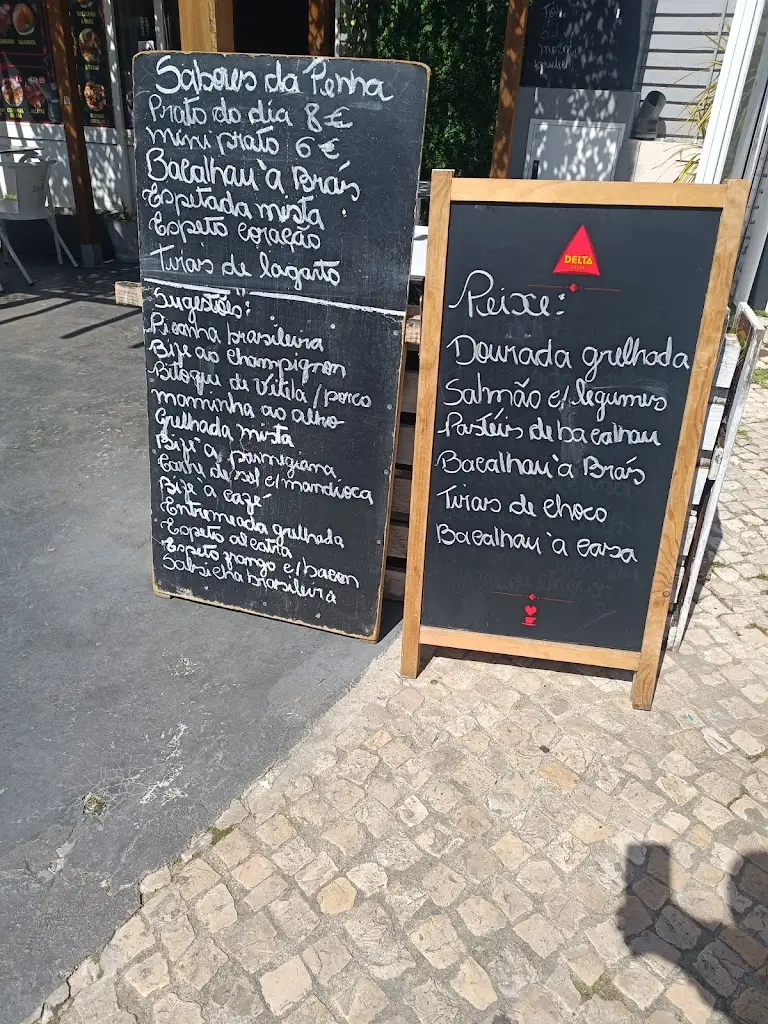 Sabores da Penha
Prato do dia 8€
mini prato 6€
Bacalhau à Brás
Espetada mista
Espeto coração
Tiras de lagarto
Sugestões:
Picanha brasileira
Bife ao champignon
Bitoque de vitela / porco
maminha ao alho
Grelhada mista
Bife à parmegiana
Carne de sol c/ mandioca
Bife à café
Entremeada grelhada
Espeto alcatra
Espeto frango c/ bacon
Salsicha brasileira
DELTA
CAFÉS
Peixe:
Dourada grelhada
Salmão c/ legumes
Pastéis de bacalhau
Bacalhau à Brás
Tiras de choco
Bacalhau à casa